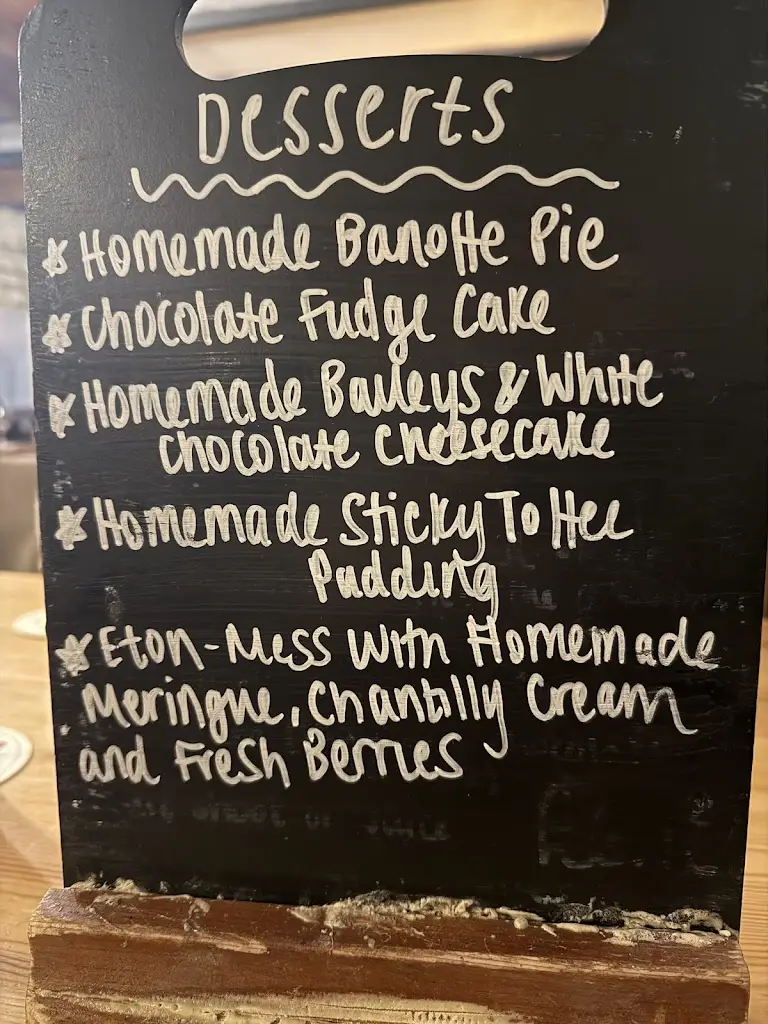 Desserts
Homemade Banoffe Pie
Chocolate Fudge Cake
Homemade Baileys & White
Chocolate Cheesecake
Homemade Sticky Toffee
Pudding
Eton-Mess With Homemade
Meringue, Chantilly Cream
and Fresh Berries